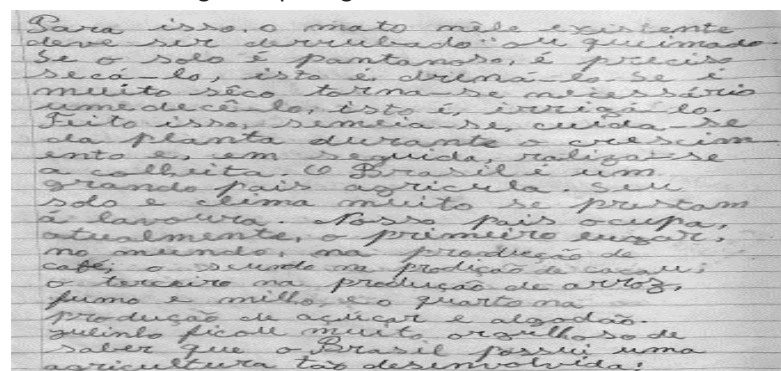 Para isso, o mato nêle existente
deve ser derrubado ou queimado
Se o solo é pantanoso, é preciso
secá-lo, isto é, drená-lo. Se é
muito sêco torna-se necessário
umedecê-lo, isto é, irrigá-lo.
Feito isso, semeia-se, cuida-se
da planta durante o crescim
ento e, em seguida, realiza-se
a colheita. O Brasil é um
grande país agricula. Seu
solo e clima muito se prestam
á lavoura. Nosso país ocupa,
atualmente, o primeiro lugar,
no mundo, na producção de
café, o segundo na produção de cacau;
o terceiro na produção de arroz,
fumo e milho, e o quarto na
produção de açúcar e algodão.
ficou muito orgulhoso de
saber que o Brasil possui uma
agricultura tão desenvolvida: